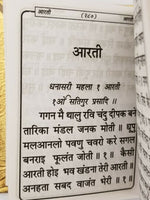 ( १८० )
आरती
धनासरी महला १ आरती
१ओं सतिगुर प्रसादि ॥
गगन मै थालु रवि चंदु दीपक बने
तारिका मंडल जनक मोती ॥ धूपु
मलआनलो पवणु चवरो करे सगल
बनराइ फूलंत जोती ॥ १ ॥ कैसी
आरती होइ भव खंडना तेरी आरती ॥
अनहता सबद वाजंत भेरी ॥ १ ॥